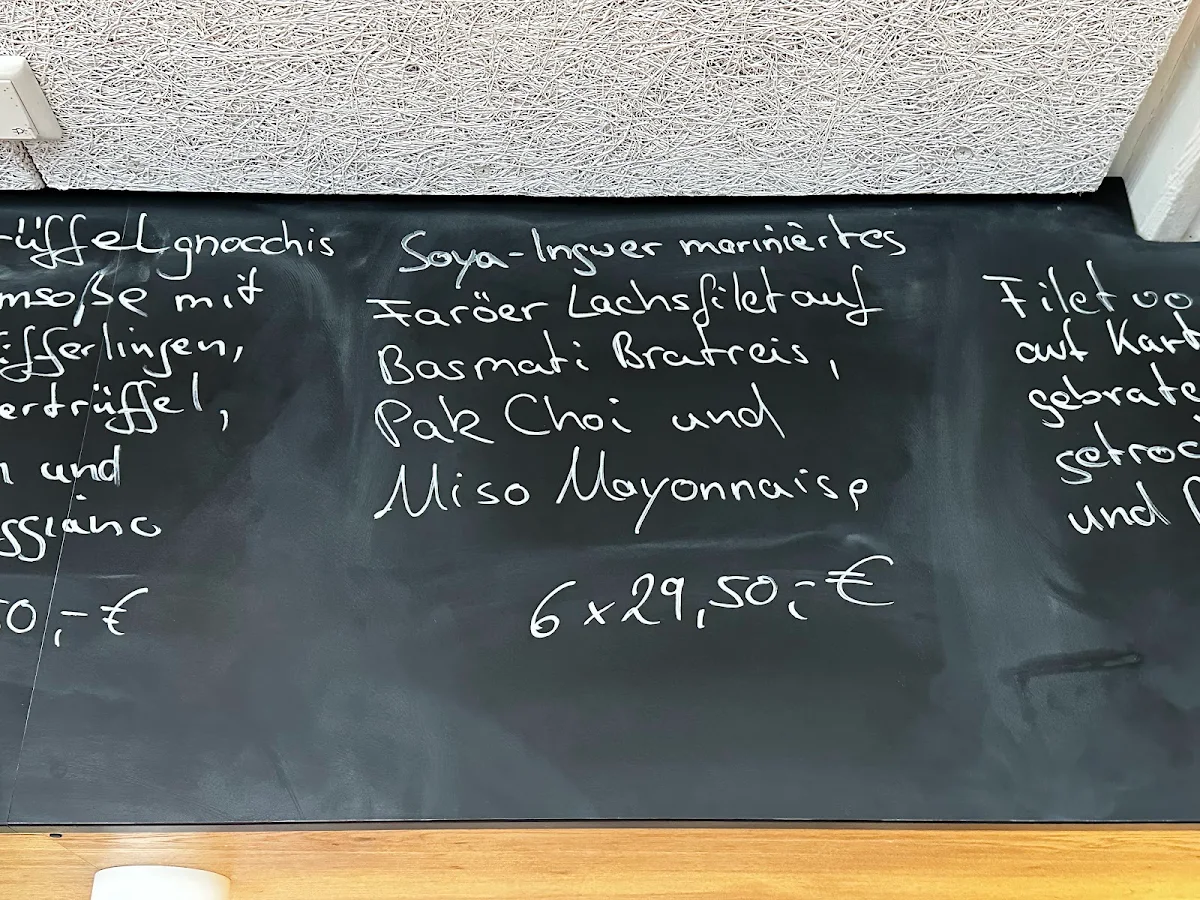 rüffelgnocchis
msoße mit
ifferlingen,
ertrüffel,
n und
ggiano
50,-€
Soya-Ingwer mariniertes
Faröer Lachsfilet auf
Basmati Bratreis,
Pak Choi und
Miso Mayonnaise
6x29,50,-€
Filet
auf Kart
gebrate
getroc
und